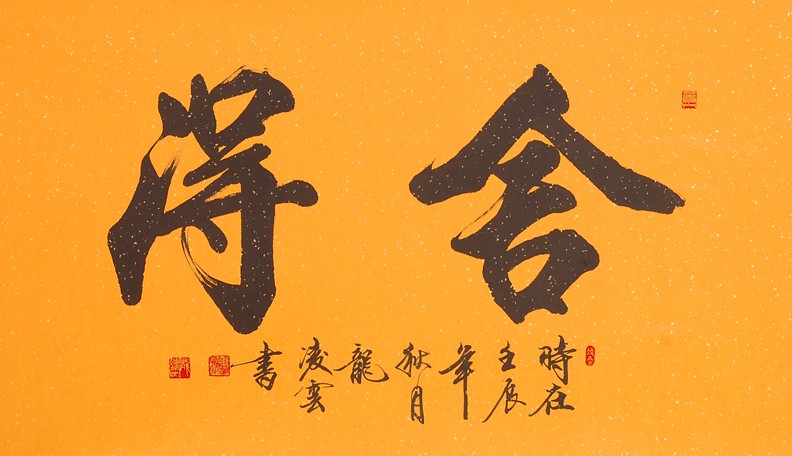 舍得
時在壬辰年秋月龍凌雲書